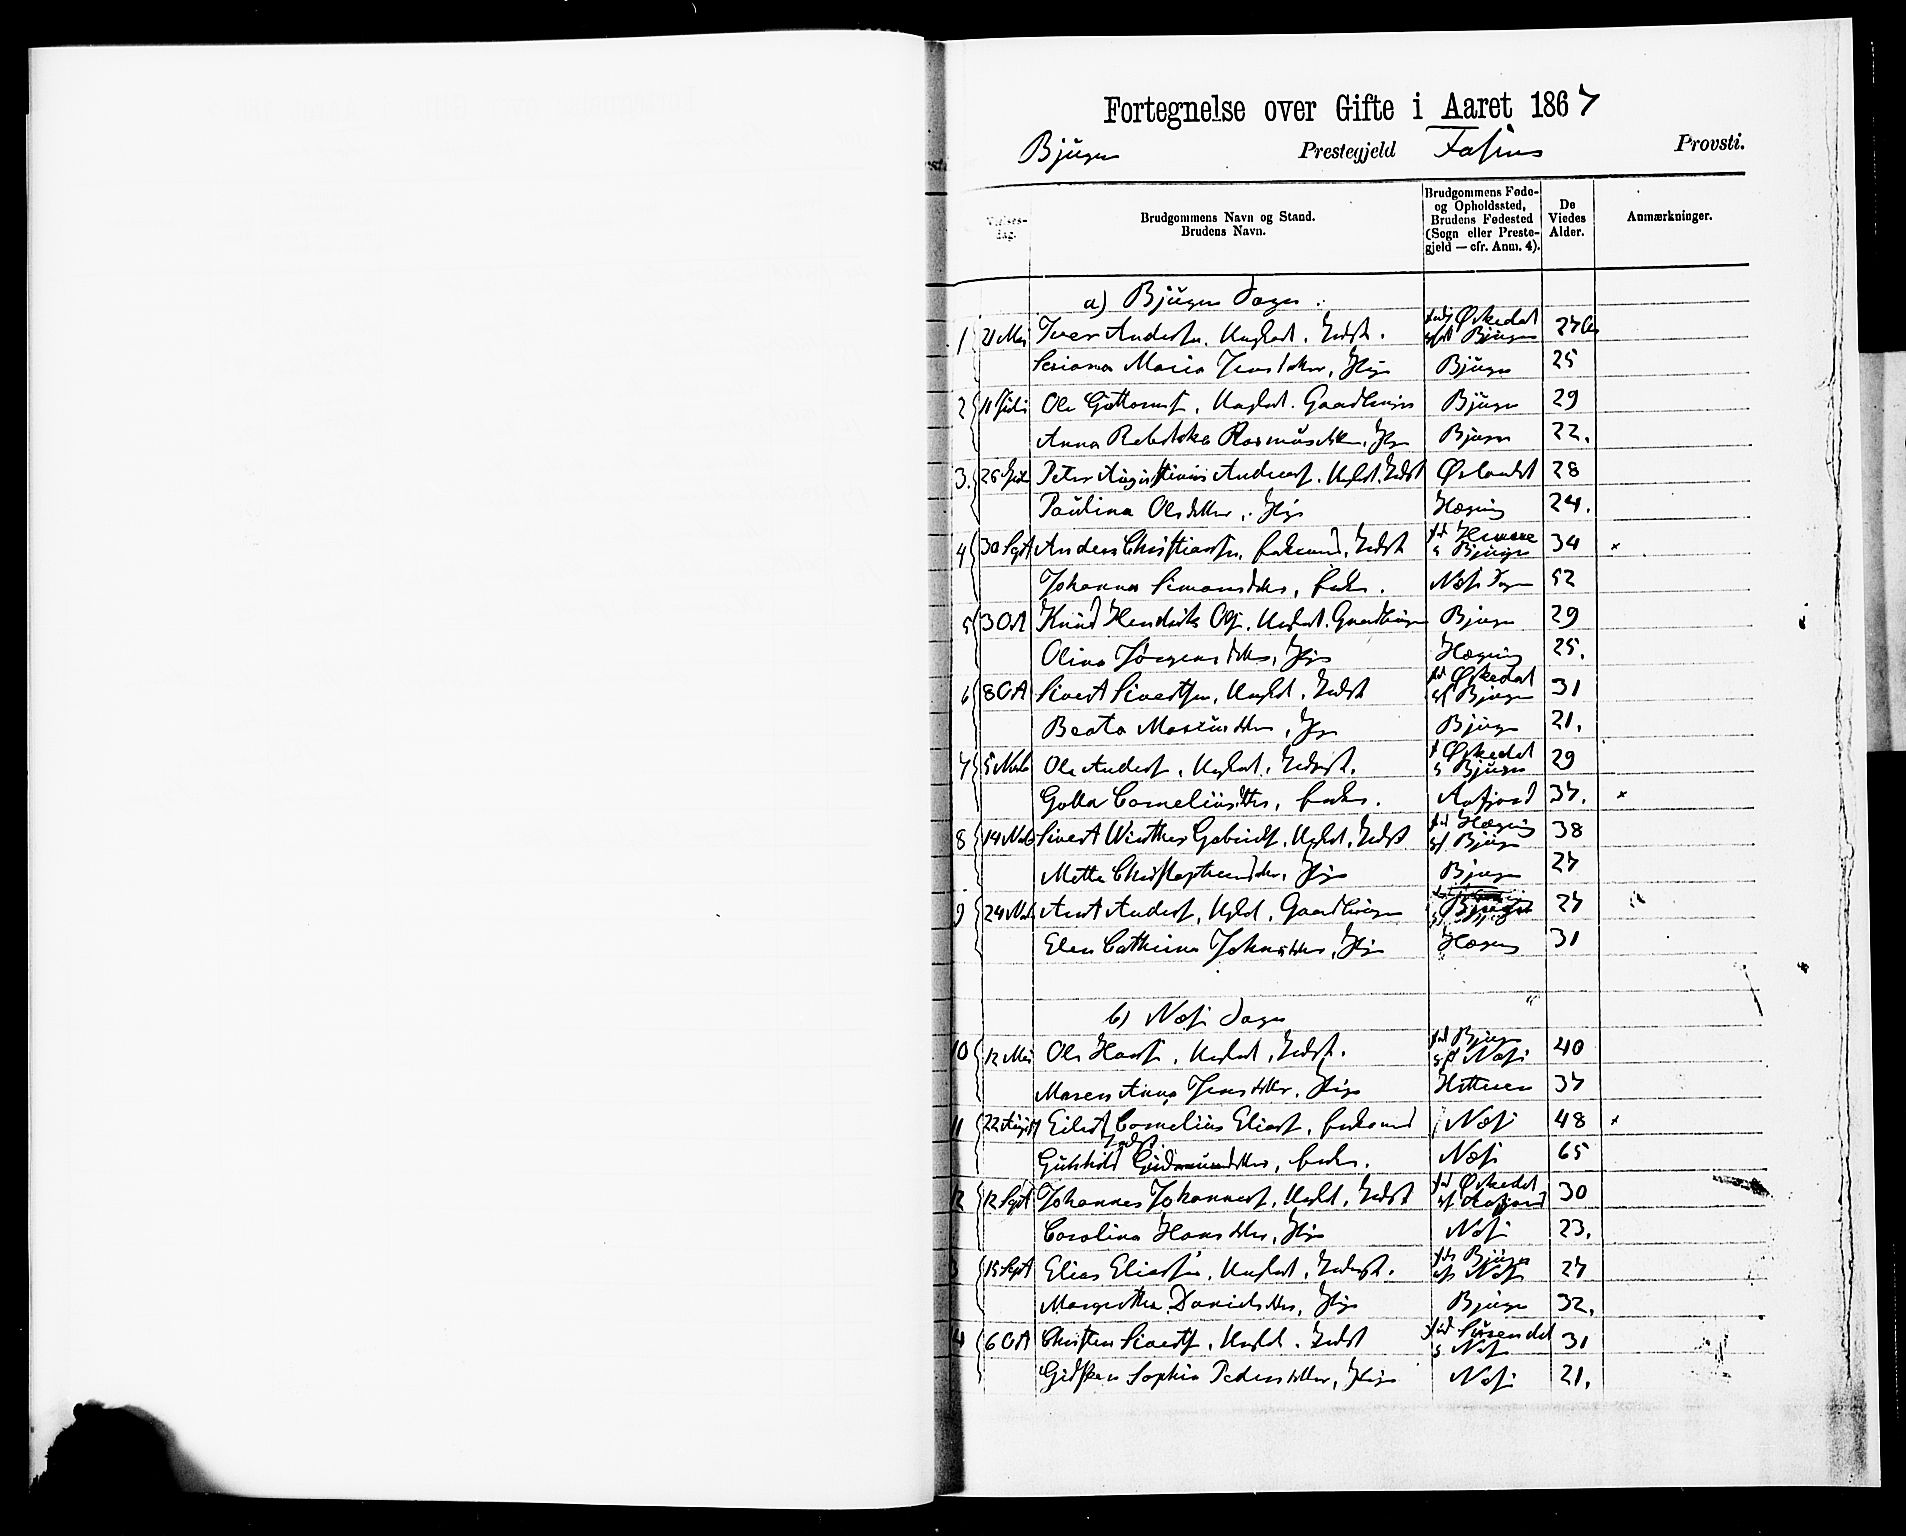 Fortegnelse over Gifte i Aaret 1867
Bjugn Prestegjeld Fosens Provsti.
Vielses-
dag.
Brudgommens Navn og Stand.
Brudens Navn.
Brudgommens Føde-
og Opholdssted,
Brudens Fødested
(Sogn eller Preste-
gjeld — cfr. Anm. 4).
De
Viedes
Alder.
Anmærkninger.
a) Bjugn Sogn.
1 21 Mai Iver Anders. Ungkarl, Indst. Ørkedal Bjugn 27
Maria Jensdtter, Pige Bjugn 25
2 11 Juli Ole Guttorms. Ungkarl. Gaardbruger Bjugn 29
Anna Rebekka Rasmusdtter, Pige Bjugn 22.
3. Peter Augustinus Anders. Ungk. Indst Ørlandet 28
Paulina Olsdtter, Pige Hægvig 24.
4 30 Sept Anders Christians. Enkemand, Indst Hevne Bjugn 34 x
Johanna Simonsdtter, Enke. Næs Sogn 52
5 3 Oct Knud Hendrik Ols. Ungkarl. Gaardbruger Bjugn 29
Olina Jørgensdtter, Pige Hægvig 25.
6 8 Oct Sivert Siverts. Ungkl. Indst Ørkedal Bjugn 31
Beata dtter, Pige Bjugn 21.
7 5 Novb Ole Anders. Ungkarl, Inderst. Ørkedal Bjugn 29
Corneliusdtter, Enke. Aafjord 37. x
8 14 Novb Sivert Gabriels. Ungkl, Indst Hægvig Bjugn 38
Mette Christophersdtter, Pige Bjugn 27
9 24 Nov Arnt Anders. Ungkl, Gaardbruger Bjugn 27
Elen Cathrina Johnsdtter, Pige Hægvig 31
b) Næs Sogn
10 12 Mai Ole Hans. Ungkarl, Indst. Bjugn Næs 40
Maren Anna Jensdtter, Pige Hitteren 37
11 22 August Eilert Cornelius Elias. Enkemand Næs 48 x
Indst.
Gunhild Gudmundsdtter, Enke. Næs 65
12 12 Sept Johannes Johannes. Ungkl, Indst Ørkedal Aafjord 30
Carolina Hansdtter, Pige Næs 23.
3 15 Sept Elias Elias. Ungkarl, Inderst. Bjugn Næs 27
Margrethe Danielsdtter, Pige Bjugn 32.
4 6 Oct Christen Siverts. Ungkl. Indst Surendal Næs 31
Gidsken Sophia Pedersdtter, Pige Næs 21.